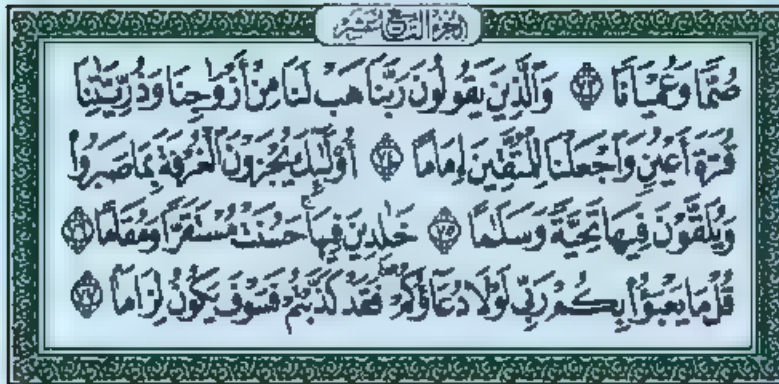 الجزء التاسع عشر
صُمًّا وَعُمْيَانًا ﴿٧٣﴾ وَالَّذِينَ يَقُولُونَ رَبَّنَا هَبْ لَنَا مِنْ أَزْوَٰجِنَا وَذُرِّيَّٰتِنَا
قُرَّةَ أَعْيُنٍ وَٱجْعَلْنَا لِلْمُتَّقِينَ إِمَامًا ﴿٧٤﴾ أُو۟لَٰٓئِكَ يُجْزَوْنَ ٱلْغُرْفَةَ بِمَا صَبَرُوا۟
وَيُلَقَّوْنَ فِيهَا تَحِيَّةً وَسَلَٰمًا ﴿٧٥﴾ خَٰلِدِينَ فِيهَا ۚ حَسُنَتْ مُسْتَقَرًّا وَمُقَامًا ﴿٧٦﴾
قُلْ مَا يَعْبَؤُا۟ بِكُمْ رَبِّى لَوْلَا دُعَآؤُكُمْ ۖ فَقَدْ كَذَّبْتُمْ فَسَوْفَ يَكُونُ لِزَامًا ﴿٧٧﴾